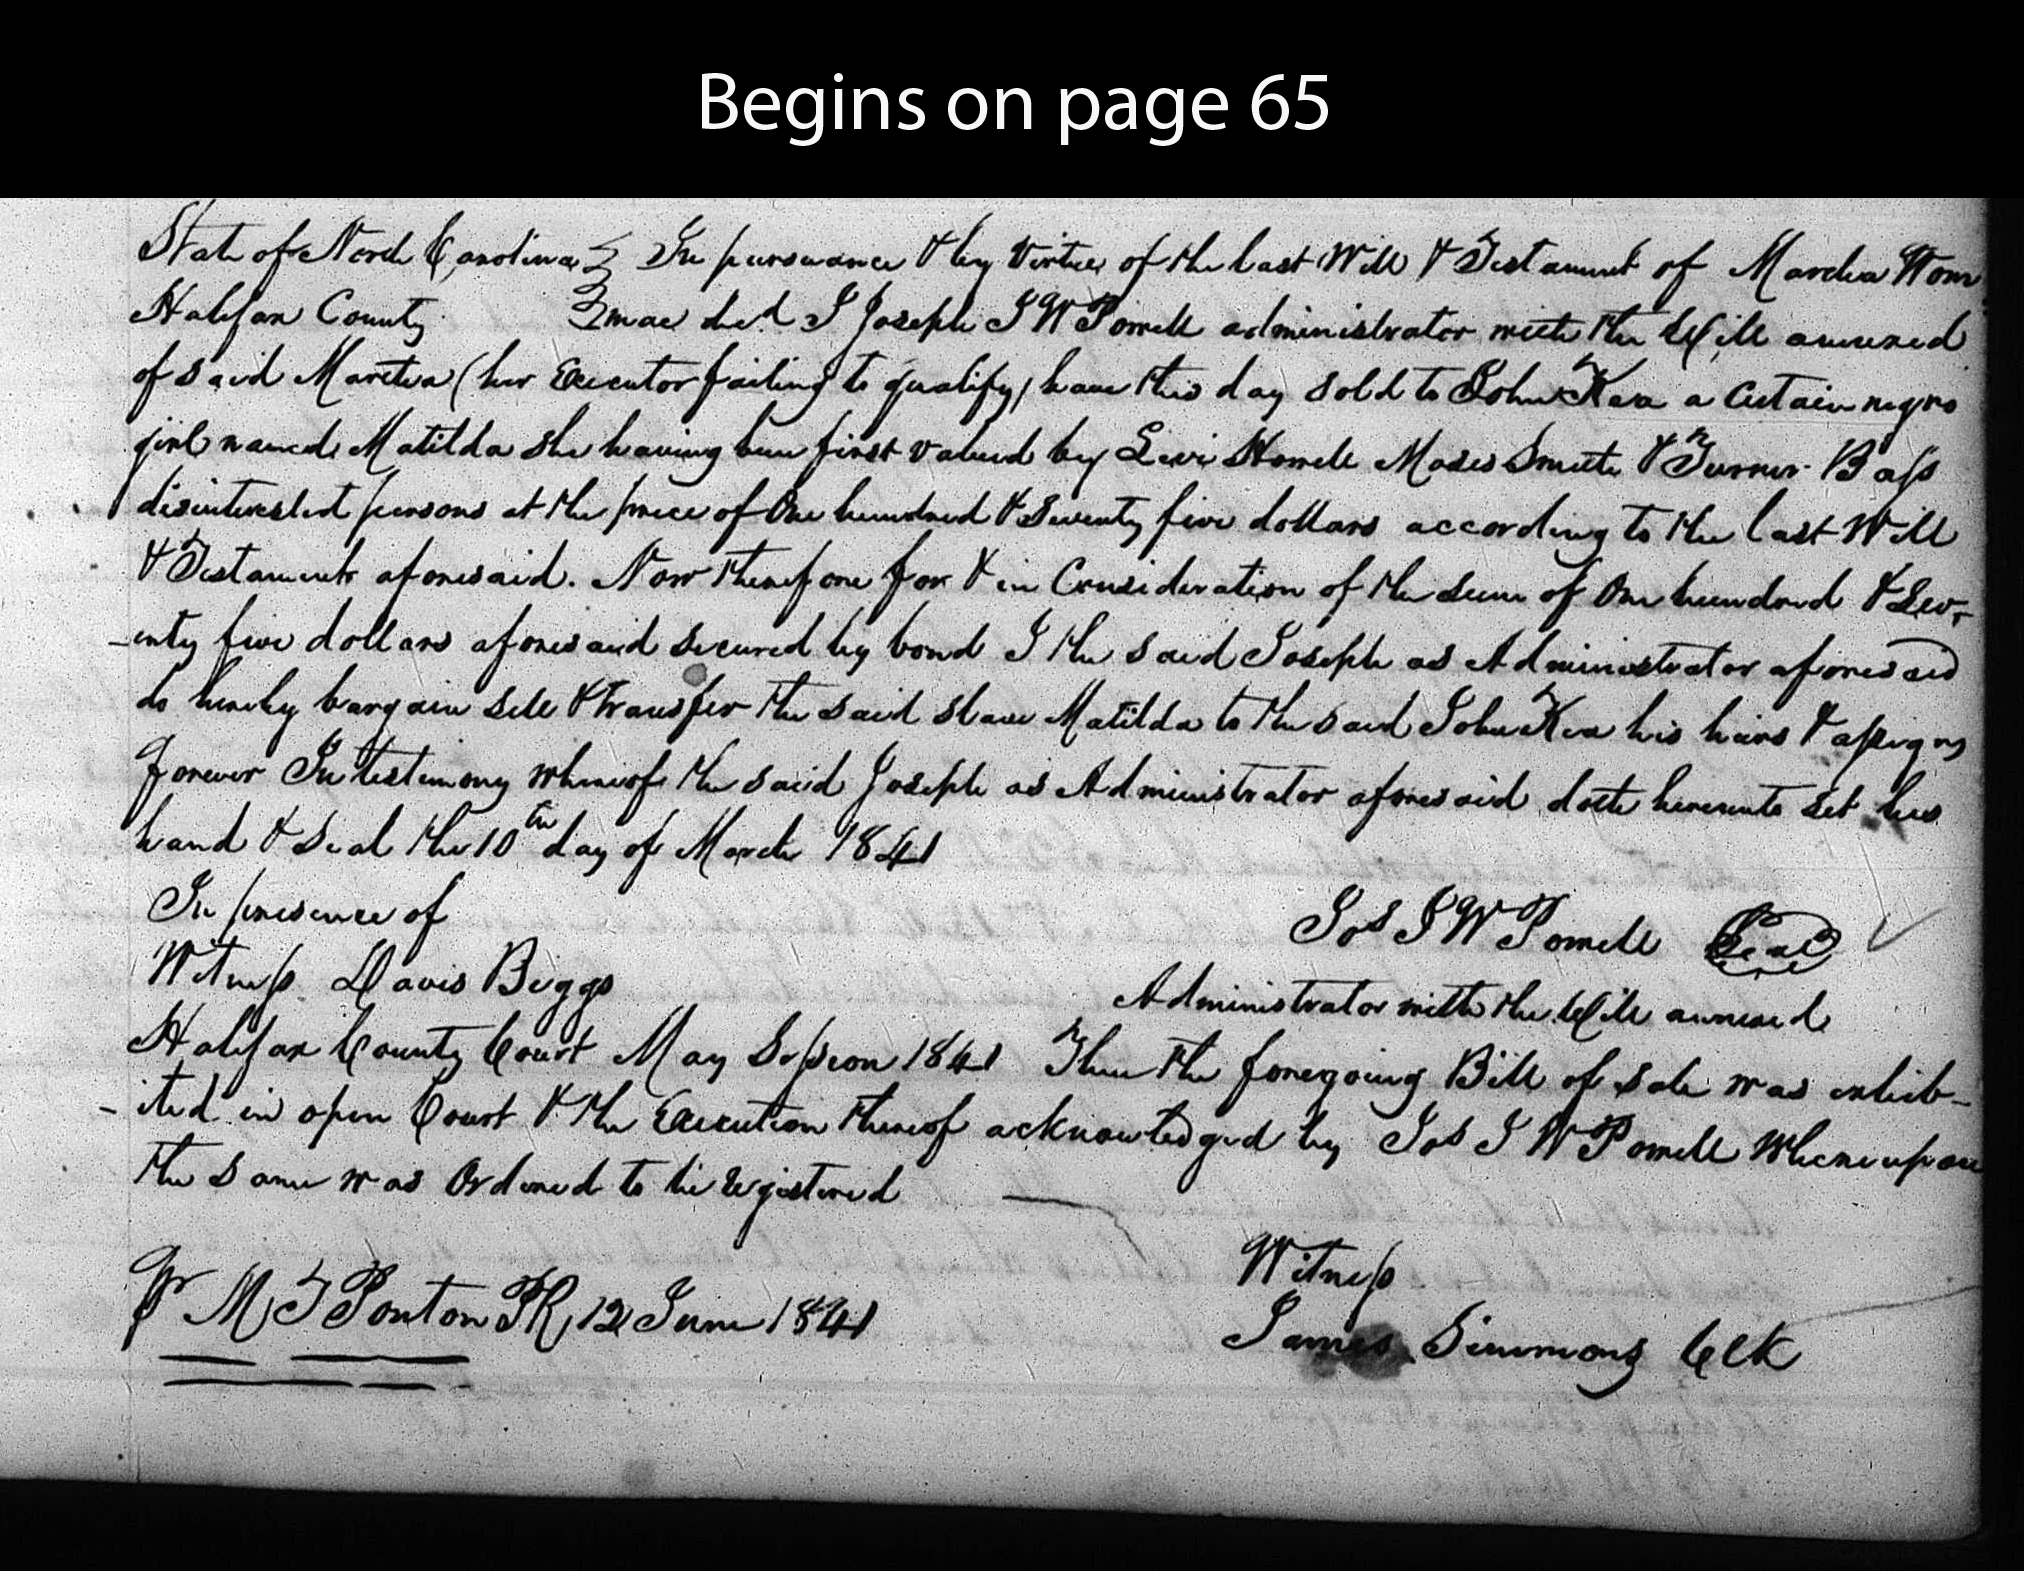 Begins on page 65
State of North Carolina } In pursuance & by Virtue of the last Will & Testament of Martha Wom
Halifax County } mac decd I Joseph J W Powell administrator with the Will annexed
of said Martha (her Executor failing to qualify) have this day sold to John Kea a certain negro
girl named Matilda she having been first valued by Levi Howell Moses Smith & Turner Bass
disinterested persons at the price of One hundred & Seventy five dollars according to the last Will
& Testament aforesaid. Now therefore for & in Consideration of the sum of One hundred & Sev-
-enty five dollars aforesaid secured by bond I the said Joseph as Administrator aforesaid
do hereby bargain sell & transfer the said slave Matilda to the said John Kea his heirs & assigns
forever In testimony whereof the said Joseph as Administrator aforesaid doth hereunto set his
hand & Seal the 10th day of March 1841
In presence of
Jos J W Powell Seal
Witness Davis Biggs
Administrator with the Will annexed
Halifax County Court May Session 1841 Then the foregoing Bill of Sale was exhib-
-ited in open Court & the Execution thereof acknowledged by Jos J W Powell Whereupon
the same was Ordered to be registered
Witness
Pr M T Ponton PR 12 June 1841
James Simmons Clk